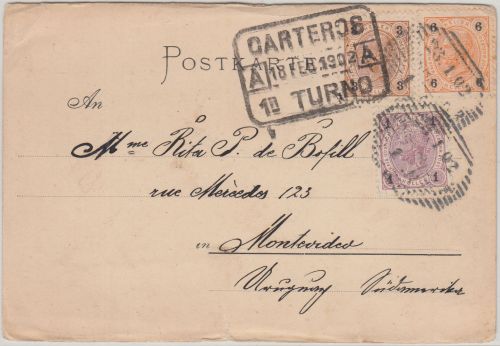 POSTKARTE
CARTEROS
A 18 FEB 1902 A
1º TURNO
3
3
6
6
6
6
1
1
An
Mme Rita P. de Bofill
rue Mercèdes 123
in Montevideo
Uruguay Südamerika